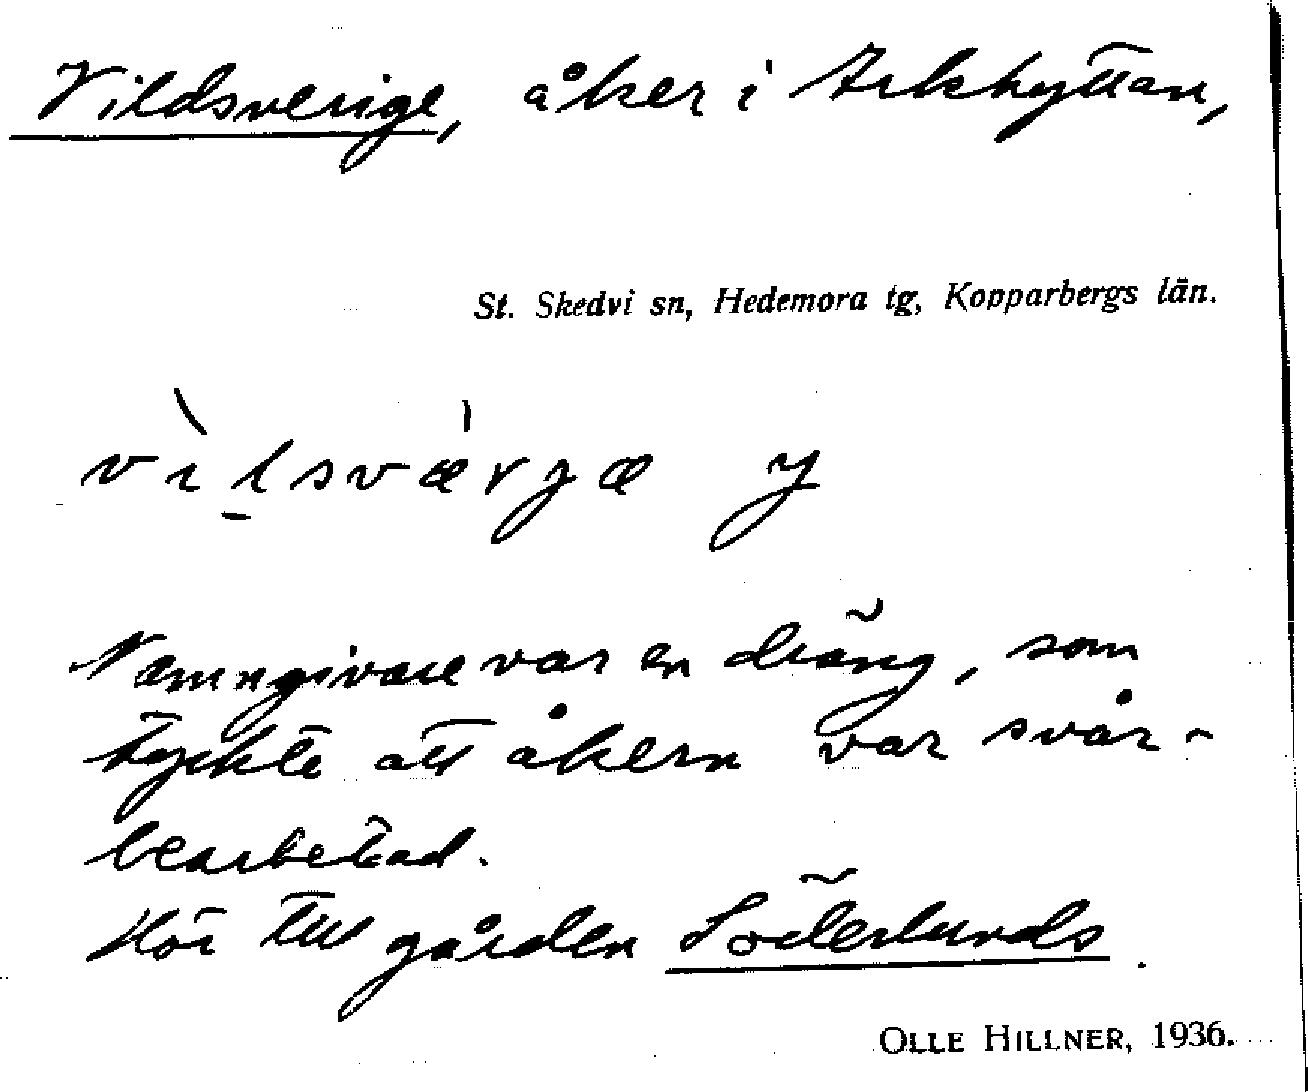 Vildsverige, åker i Arkhyttan,
St. Skedvi sn, Hedemora tg, Kopparbergs län.
vìlsvärjæ y
Namngivare var en dräng, som
tyckte att åkern var svår-
bearbetad.
Hör till gården Söderlunds.
OLLE HILLNER, 1936.